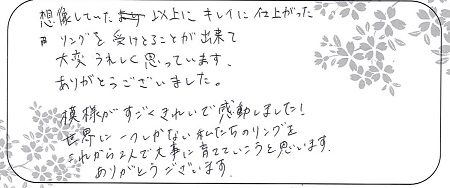 想像していた 以上に キレイに 仕上がった
リングを 受けとることが出来て
大変 うれしく 思っています。
ありがとうございました。
模様がすごくきれいで感動しました!
世界に一つしかない私たちのリングを
これから2人で大事に育てていこうと思います.
ありがとうございます.